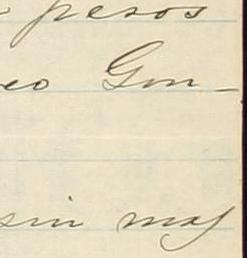 pesos
eo Gon-
sin mas